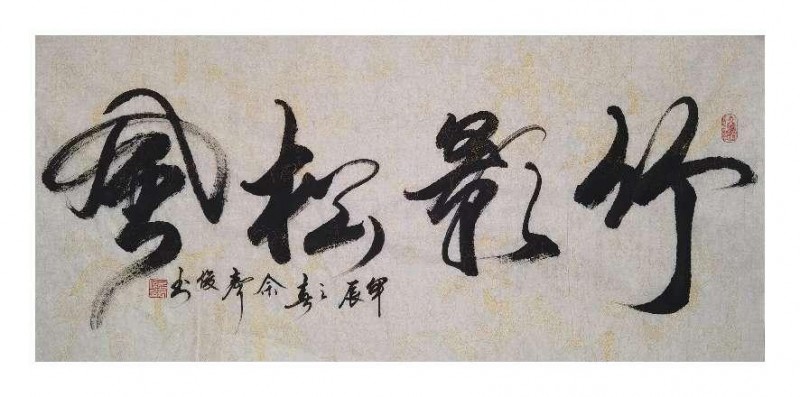 竹影松風
甲辰之春余俊书